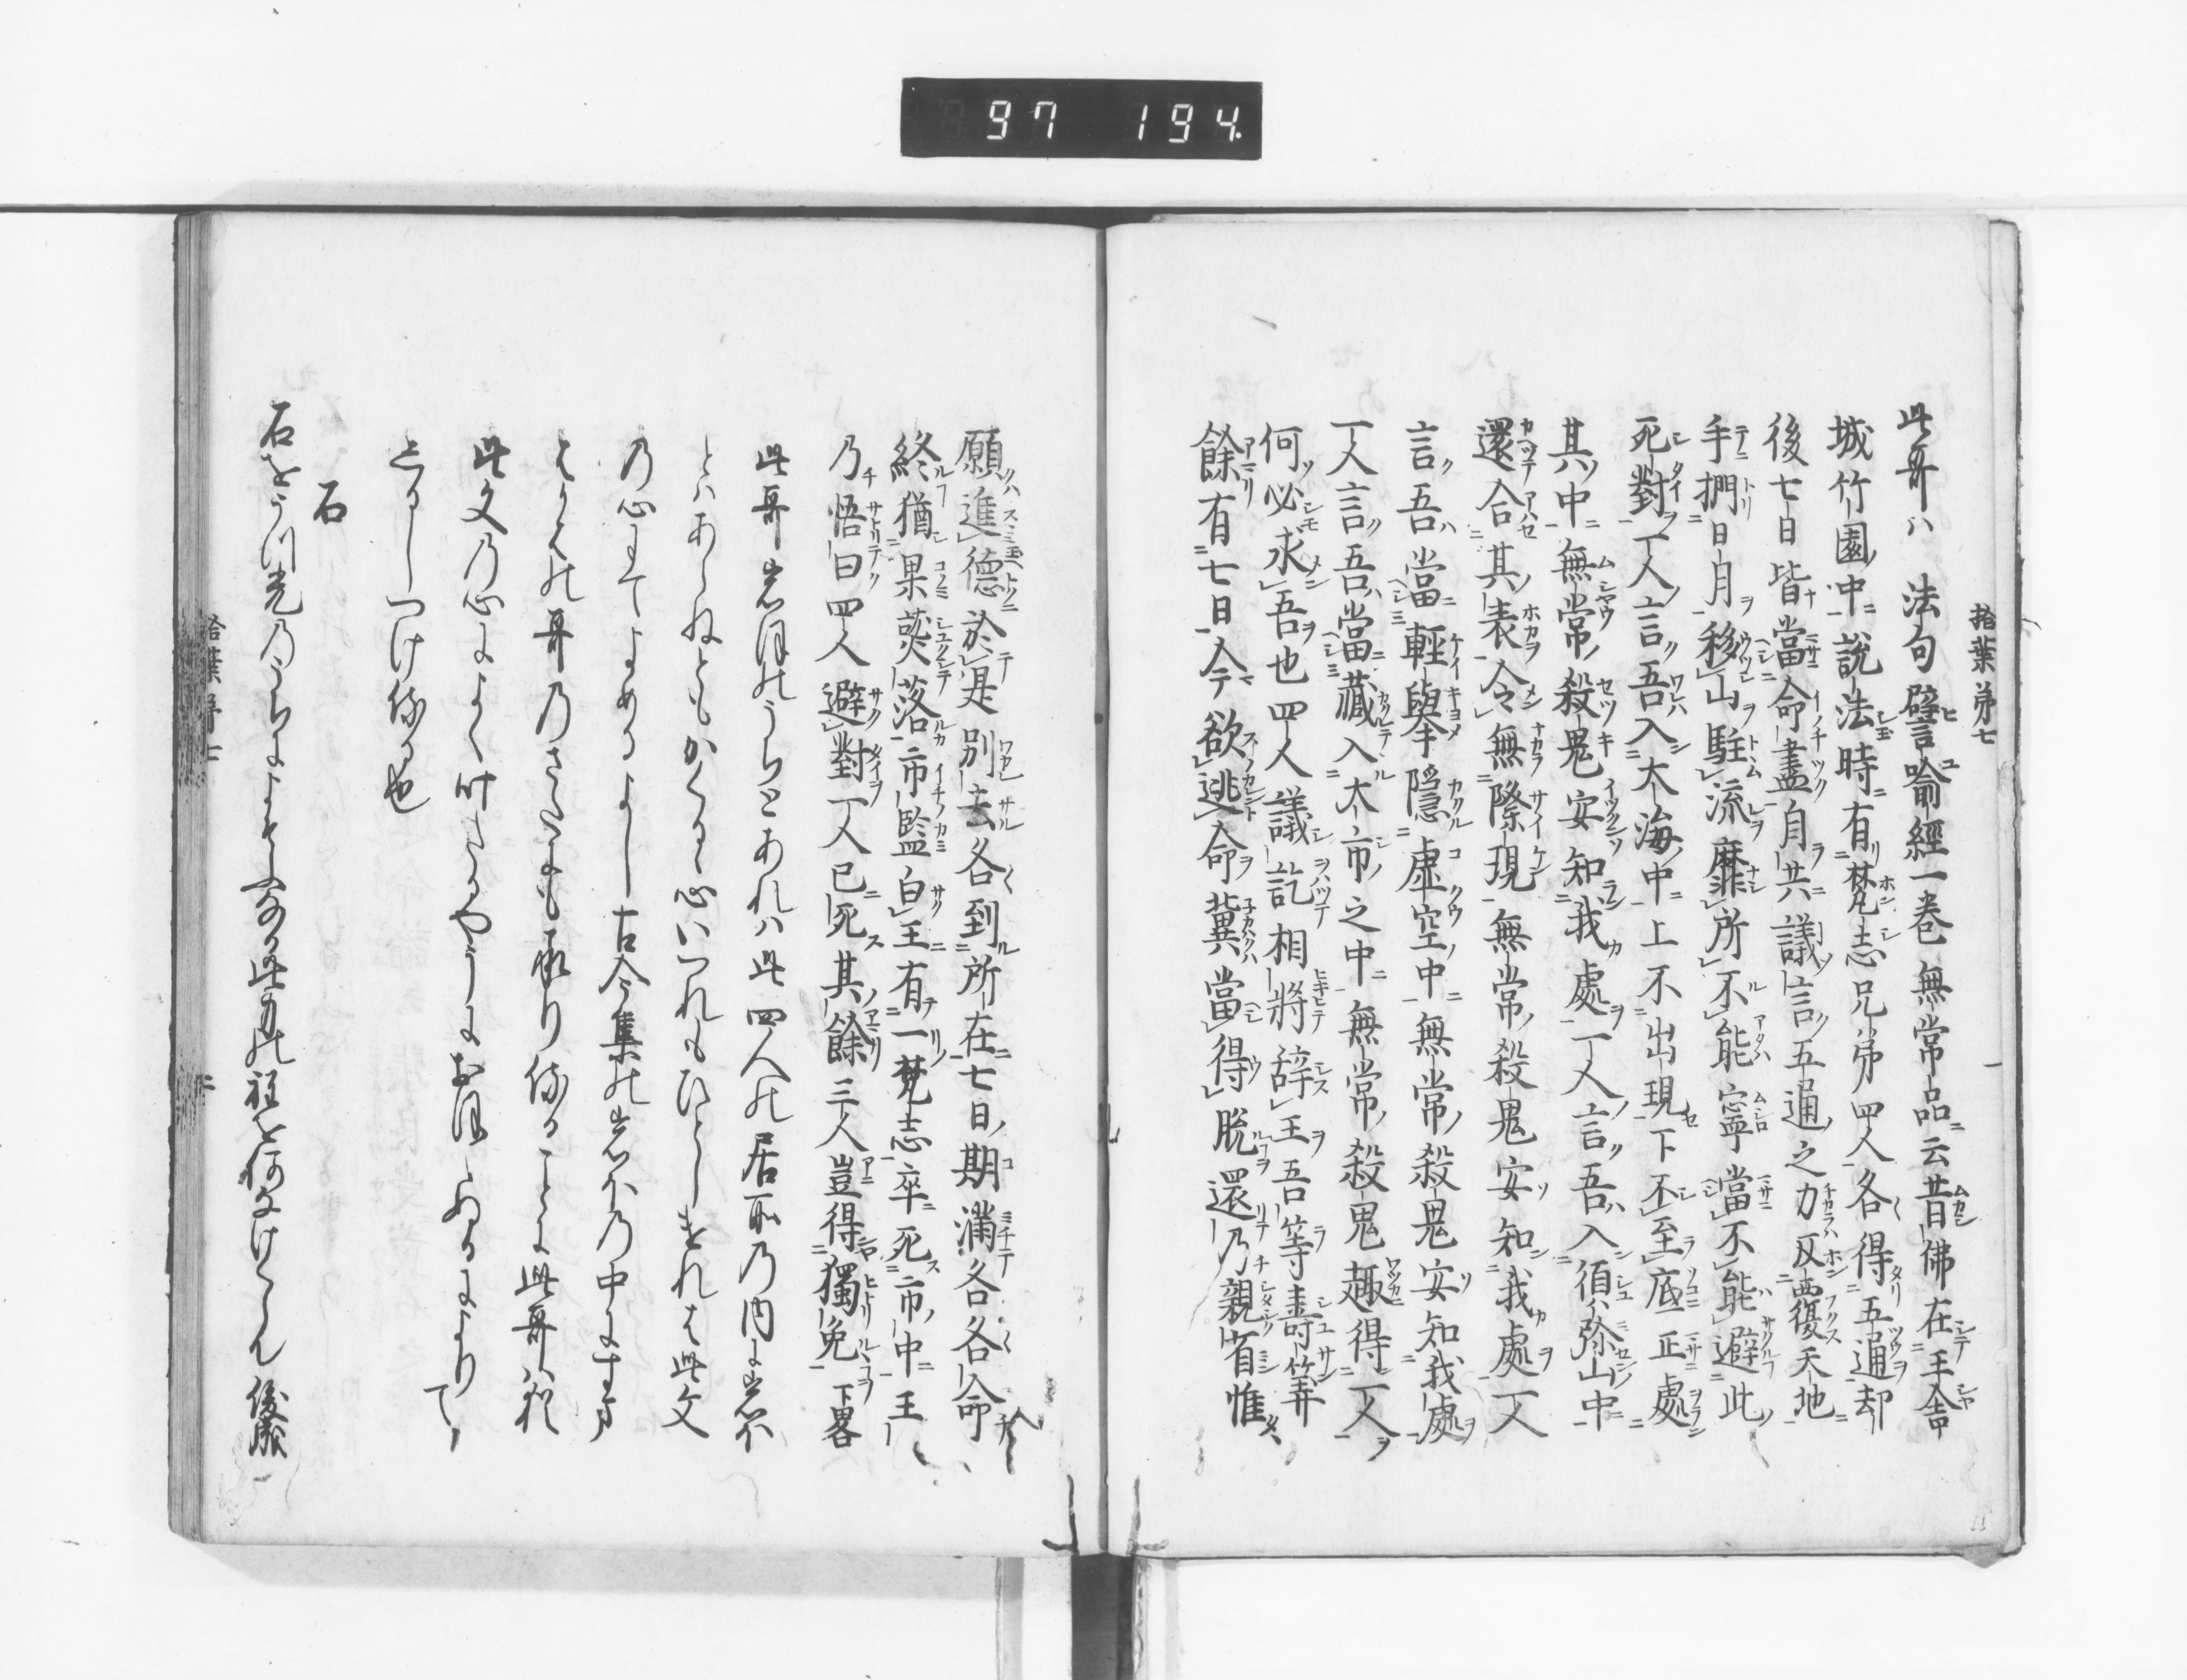 97 194.
拾葉第七
此哥ハ 法句譬喩經一巻無常品云昔佛在王舎
城竹園中説法時有梵志兄弟四人各得五通却
後七日皆當命盡自共議言五通之力反覆天地
手捫日月移山駐流靡所不能寧當不能避此
死對一人言吾入大海中上不出現下不至底正處
其中無常殺鬼安知我處一人言吾入須弥山中
還合其表令無際現無常殺鬼安知我處一人
言吾當輕擧隠虚空中無常殺鬼安知我處
一人言吾當藏入大市之中無常殺鬼趣得一人
何必求吾也四人議訖相將辞王吾等壽筭
餘有七日今欲逃命冀當得脱還乃親省惟
願進徳於是別去各到所在七日期満各各命
終猶果熟落市監白王有一梵志卒死市中王
乃悟曰四人避對一人已死其餘三人豈得獨免 下畧
此哥岩ほのうちとあれハ此四人の居所乃内に岩ほ
とハあらねともかくるゝ心いつれもひとしけれは此文
乃心にてよめるよし古今集の岩ほ乃中にすまは
はかはの哥乃さたにも承り侍ることに此哥ハ
此文乃心によく叶たるやうにおほゆるによりて
とるしつけ侍る也
石
石をうつ光乃うちによそふなる此身の程を何なけくらん 後
拾葉第七 二